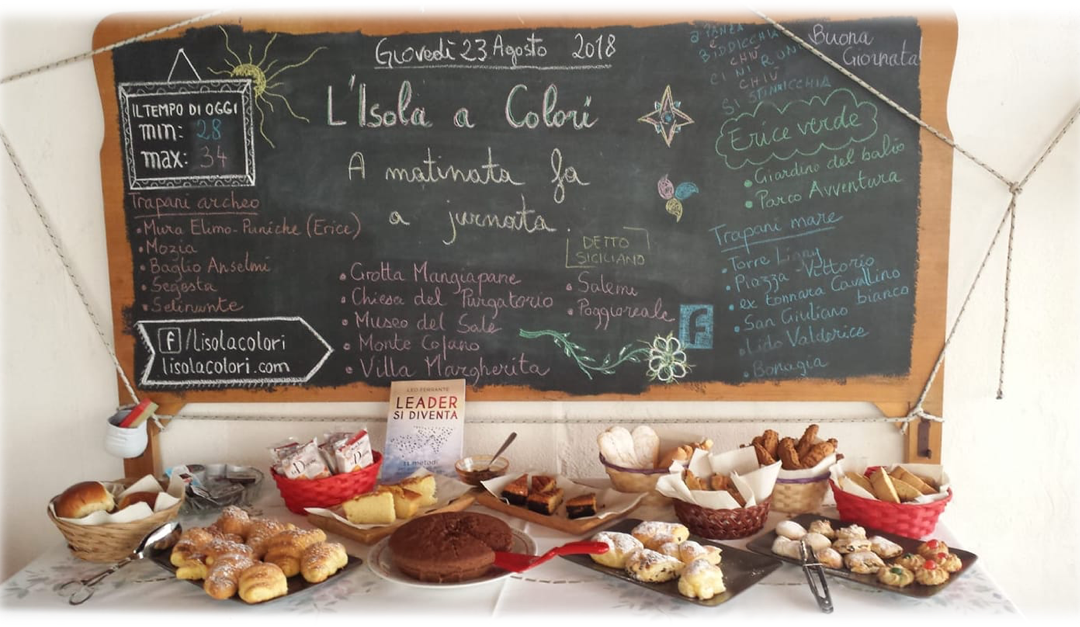 Giovedì 23 Agosto 2018
L'Isola a Colori
A matinata fa
a jurnata
DETTO
SICILIANO
IL TEMPO DI OGGI
min: 28
max: 34
Trapani archeo
• Mura Elimo-Puniche (Erice)
• Mozia
• Baglio Anselmi
• Segesta
• Selinunte
f/lisolacolori
lisolacolori.com
• Grotta Mangiapane
• Chiesa del Purgatorio
• Museo del Sale
• Monte Cofano
• Villa Margherita
• Salemi
• Poggioreale
f
A PANZA
È
CHIÙ
CI NI
CHIÙ
SI
Buona
Giornata
Erice verde
• Giardino del balio
• Parco Avventura
Trapani mare
• Torre Ligny
• Piazza Vittorio
• ex tonnara Cavallino
bianco
• San Giuliano
• Lido Valderice
• Bonagia
LEADER
SI DIVENTA